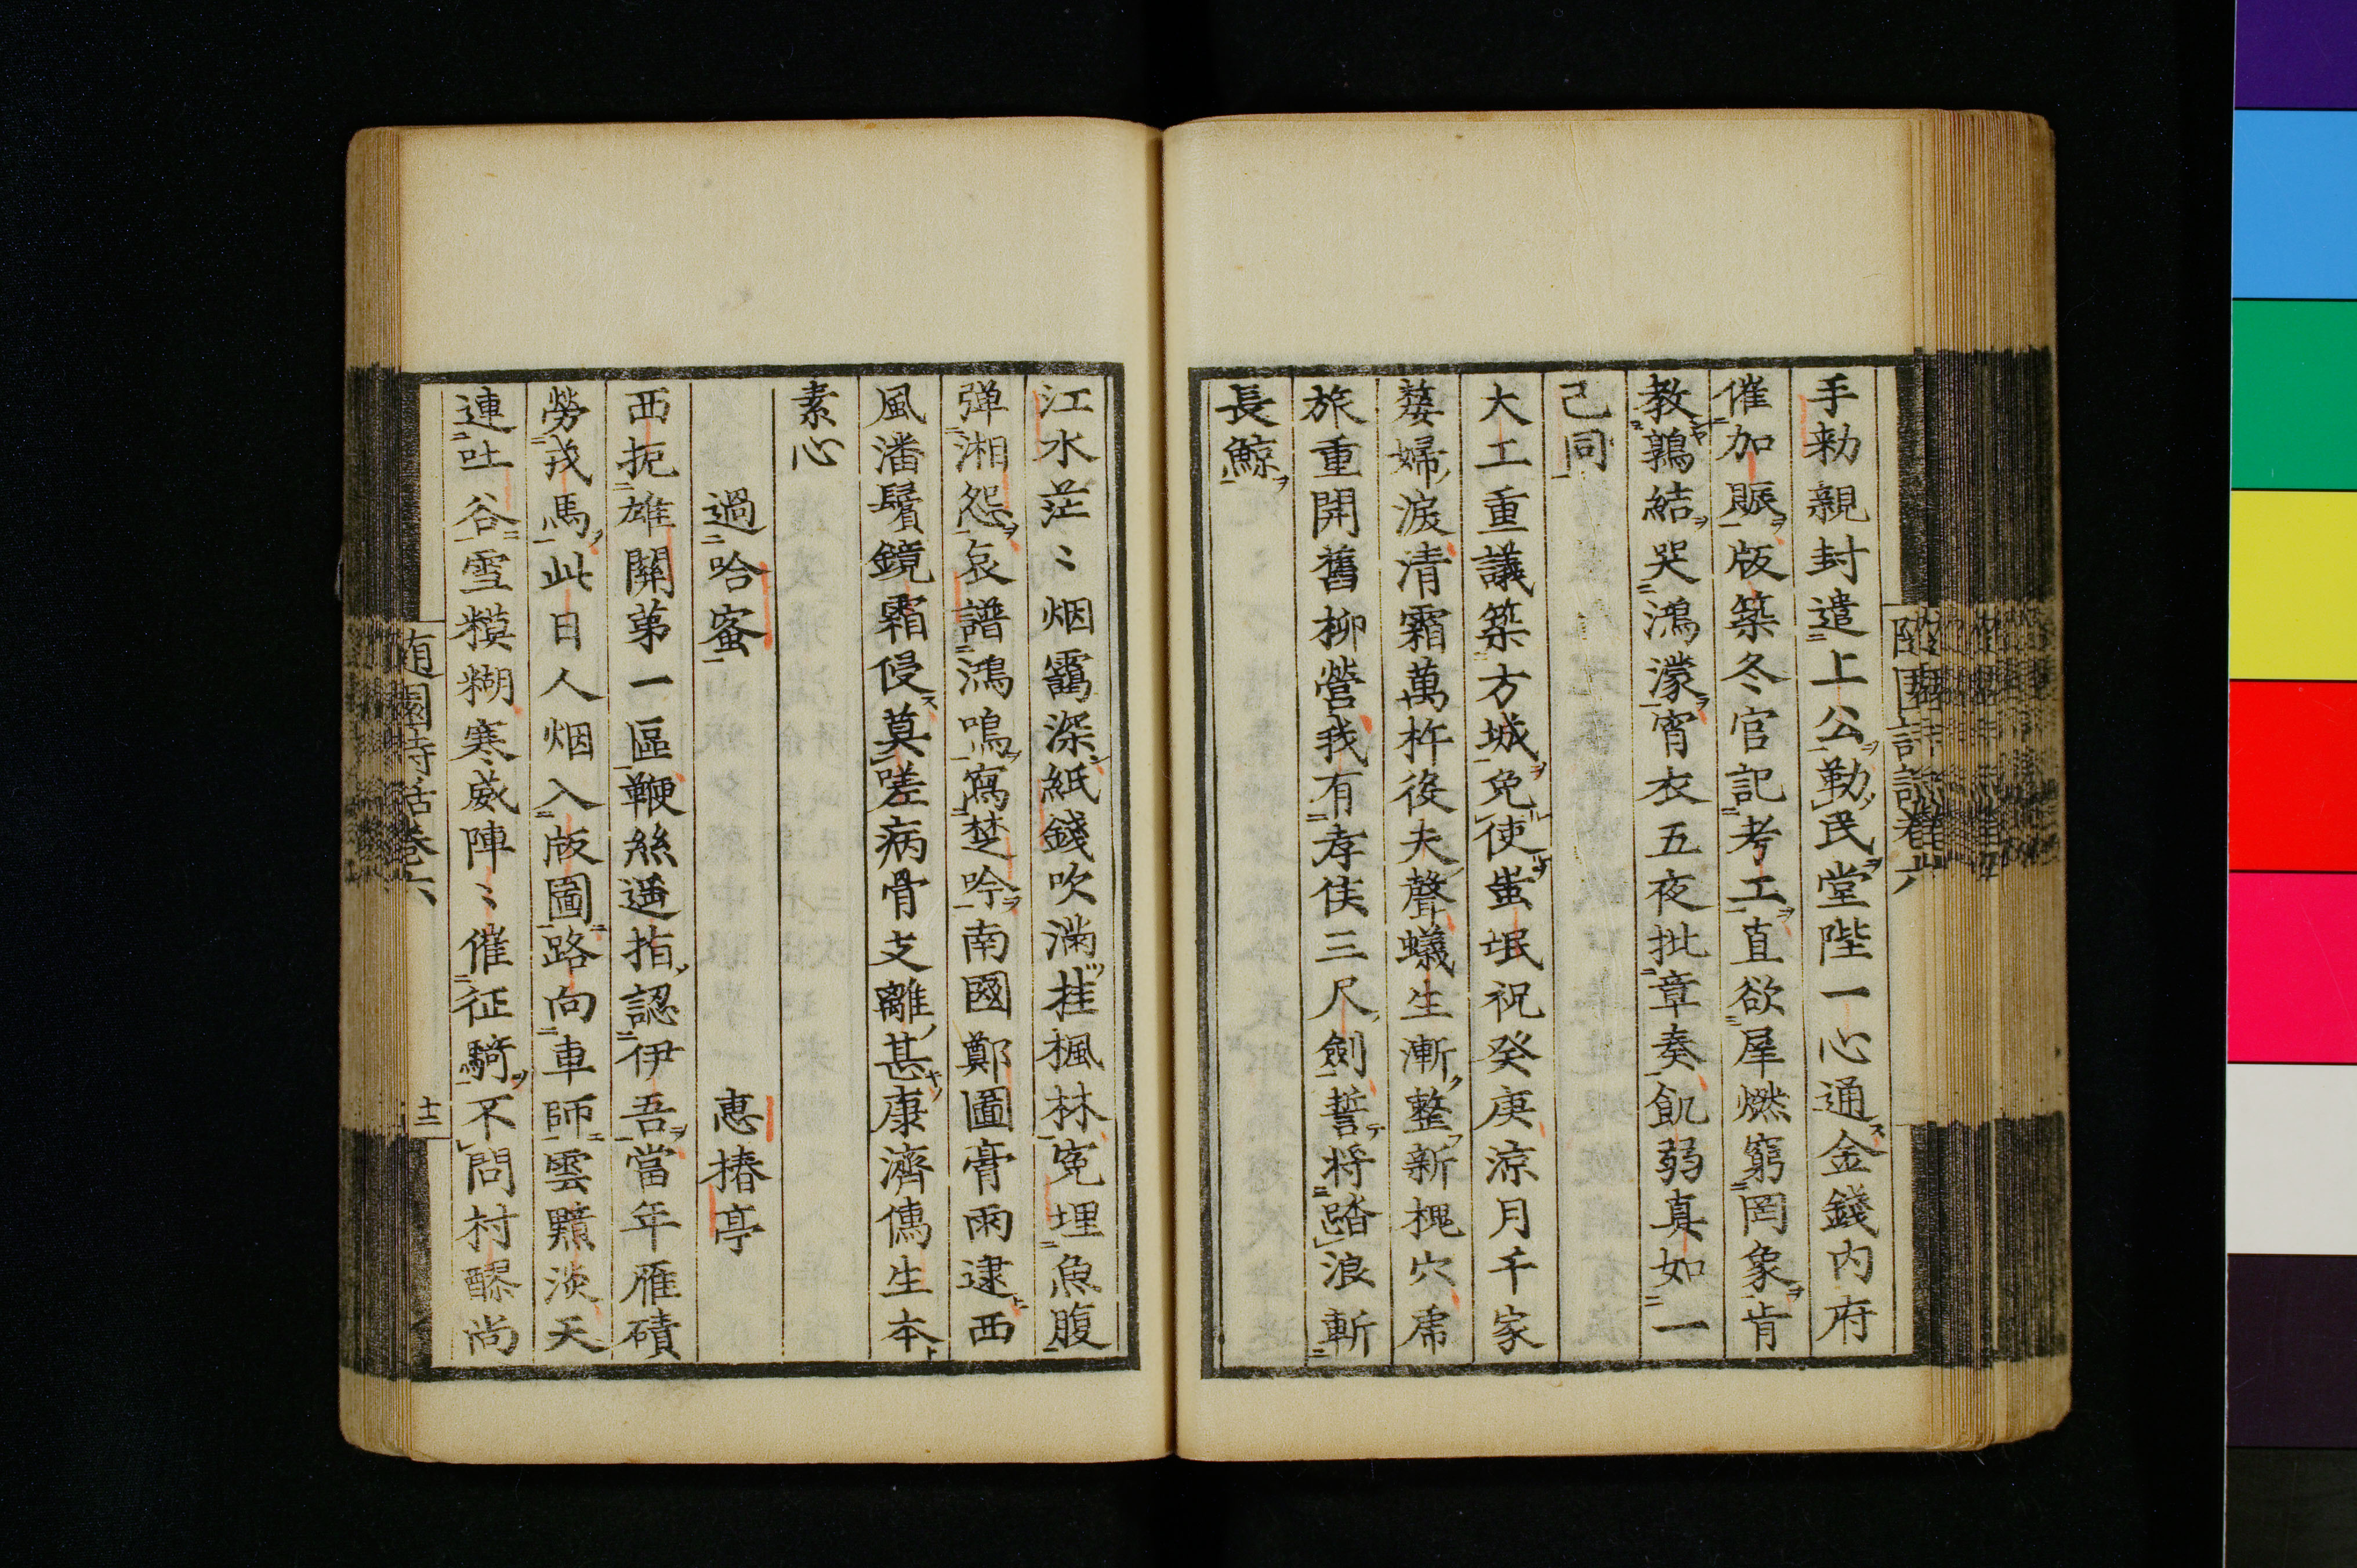 手勅親封遣上公勤民堂陛一心通金錢内府
催加賑版築冬官記考工直欲犀燃窮罔象肯
教鶉結哭鴻濛宵衣五夜批章奏飢弱真如一
己同
大工重議築方城免使蚩氓祝癸庚涼月千家
嫠婦淚清霜萬杵役夫聲蟻生漸整新槐穴虎
旅重開舊柳營我有孝侯三尺劍誓將踏浪斬
長鯨
江水茫〻烟靄深紙錢吹滿挂楓林寃埋魚腹
弾湘怨哀譜鴻鳴寫楚吟南國鄭圖膏雨逮西
風潘鬢鏡霜侵莫嗟病骨支離甚康濟儁生本
素心
過哈蜜 惠椿亭
西扼雄關第一區鞭絲遥指認伊吾當年雁磧
勞戎馬此日人烟入版圖路向車師雲黯淡天
連吐谷雪糢糊寒威陣〻催征騎不問村醪尚
随園詩話巻六 十二